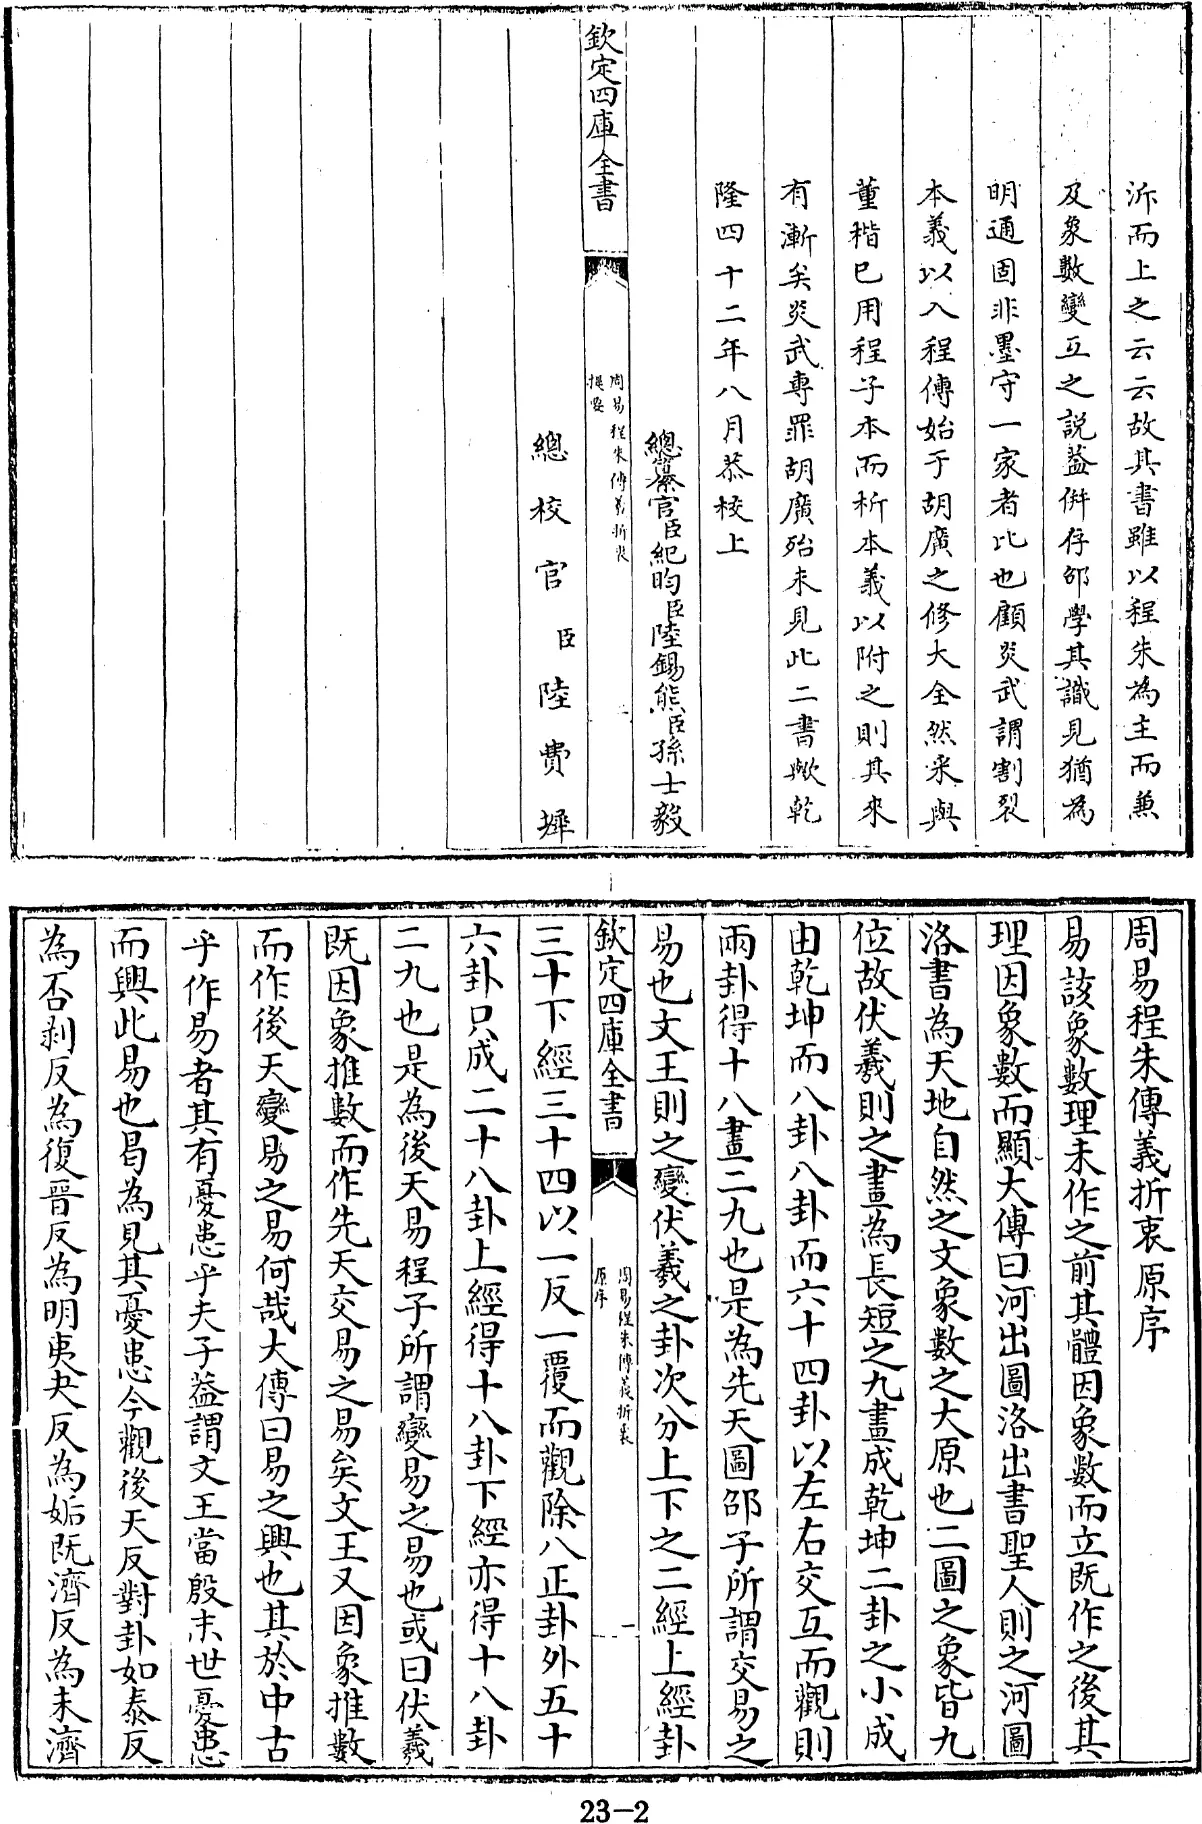 沂而上之云云故其書雖以程朱為主而兼
及象數變互之説葢倂存邵學其識見猶為
明通固非墨守一家者比也顧炎武謂割裂
本義以入程傳始于胡廣之修大全然采與
董楷已用程子本而析本義以附之則其來
有漸矣炎武專罪胡廣殆未見此二書歟乾
隆四十二年八月恭校上
總纂官臣紀昀臣陸錫熊臣孫士毅
欽定四庫全書
周易程朱傳義折衷
提要
總校官臣陸費墀
周易程朱傳義折衷原序
易該象數理未作之前其體因象數而立既作之後其
理因象數而顯大傳曰河出圖洛出書聖人則之河圖
洛書為天地自然之文象數之大原也二圖之象皆九
位故伏羲則之畫為長短之九畫成乾坤二卦之小成
由乾坤而八卦八卦而六十四卦以左右交互而觀則
兩卦得十八畫二九也是為先天圖邵子所謂交易之
易也文王則之變伏羲之卦次分上下之二經上經卦
欽定四庫全書
周易程朱傳義折衷
原序
一
三十下經三十四以一反一覆而觀除八正卦外五十
六卦只成二十八卦上經得十八卦下經亦得十八卦
二九也是為後天易程子所謂變易之易也或曰伏羲
既因象推數而作先天交易之易矣文王又因象推數
而作後天變易之易何哉大傳曰易之興也其於中古
乎作易者其有憂患乎夫子葢謂文王當殷末世憂患
而興此易也曷為見其憂患今觀後天反對卦如泰反
為否剥反為復晉反為明夷夬反為姤既濟反為未濟
23-2